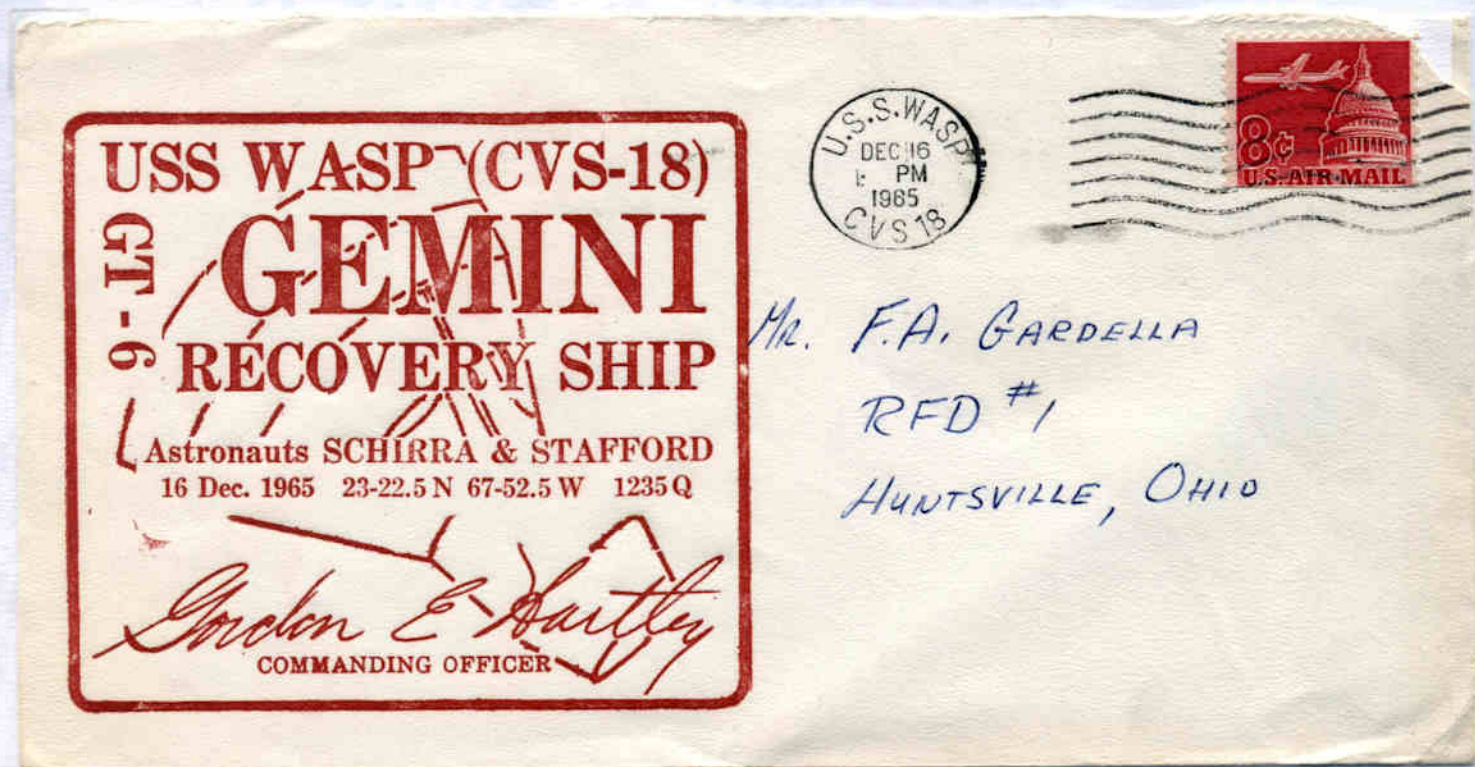 USS WASP (CVS-18)
GT-6
GEMINI
RECOVERY SHIP
Astronauts SCHIRRA & STAFFORD
16 Dec. 1965 23-22.5 N 67-52.5 W 1235 Q
Gordon E Hartley
COMMANDING OFFICER
U.S.S. WASP
DEC 16
PM
1965
CVS 18
8¢
U.S. AIR MAIL
Mr. F.A. GARDELLA
RFD #1
HUNTSVILLE, OHIO